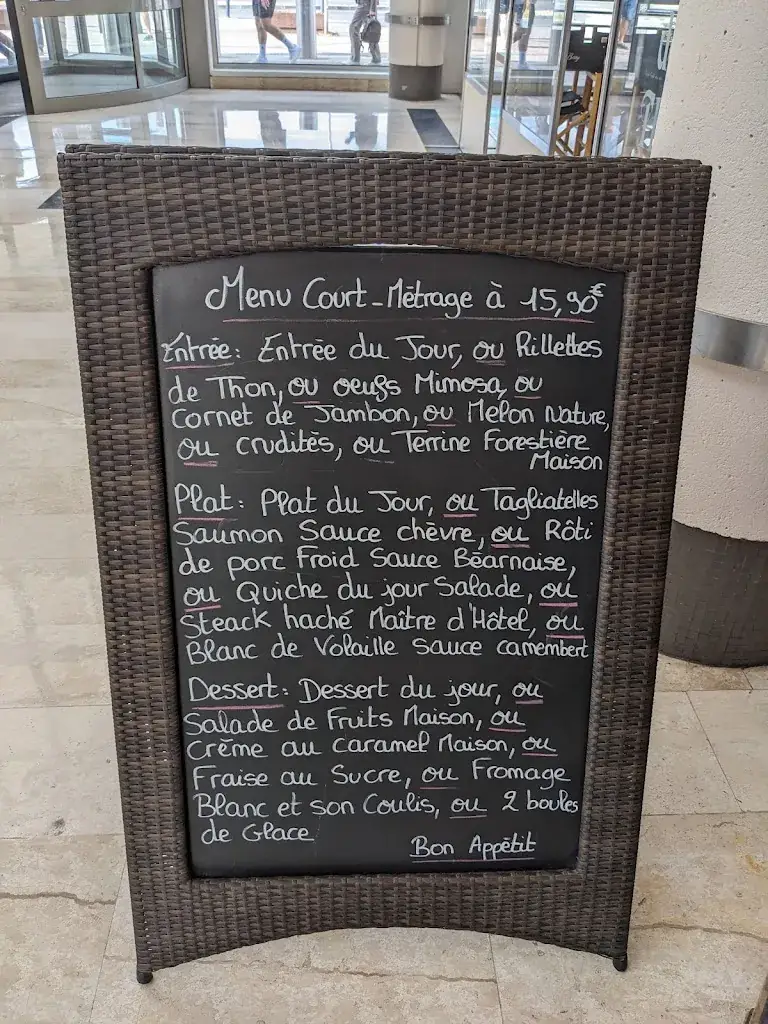 Menu Court-Métrage à 15,90€
Entrée: Entrée du Jour, ou Rillettes
de Thon, ou oeufs Mimosa, ou
Cornet de Jambon, ou Melon Nature,
ou crudités, ou Terrine Forestière
Maison
Plat: Plat du Jour, ou Tagliatelles
Saumon Sauce chèvre, ou Rôti
de porc Froid Sauce Béarnaise,
ou Quiche du jour Salade, ou
Steack haché Maître d'Hôtel, ou
Blanc de Volaille sauce camembert
Dessert: Dessert du jour, ou
Salade de Fruits Maison, ou
Crème au caramel Maison, ou
Fraise au Sucre, ou Fromage
Blanc et son Coulis, ou 2 boules
de Glace
Bon Appétit